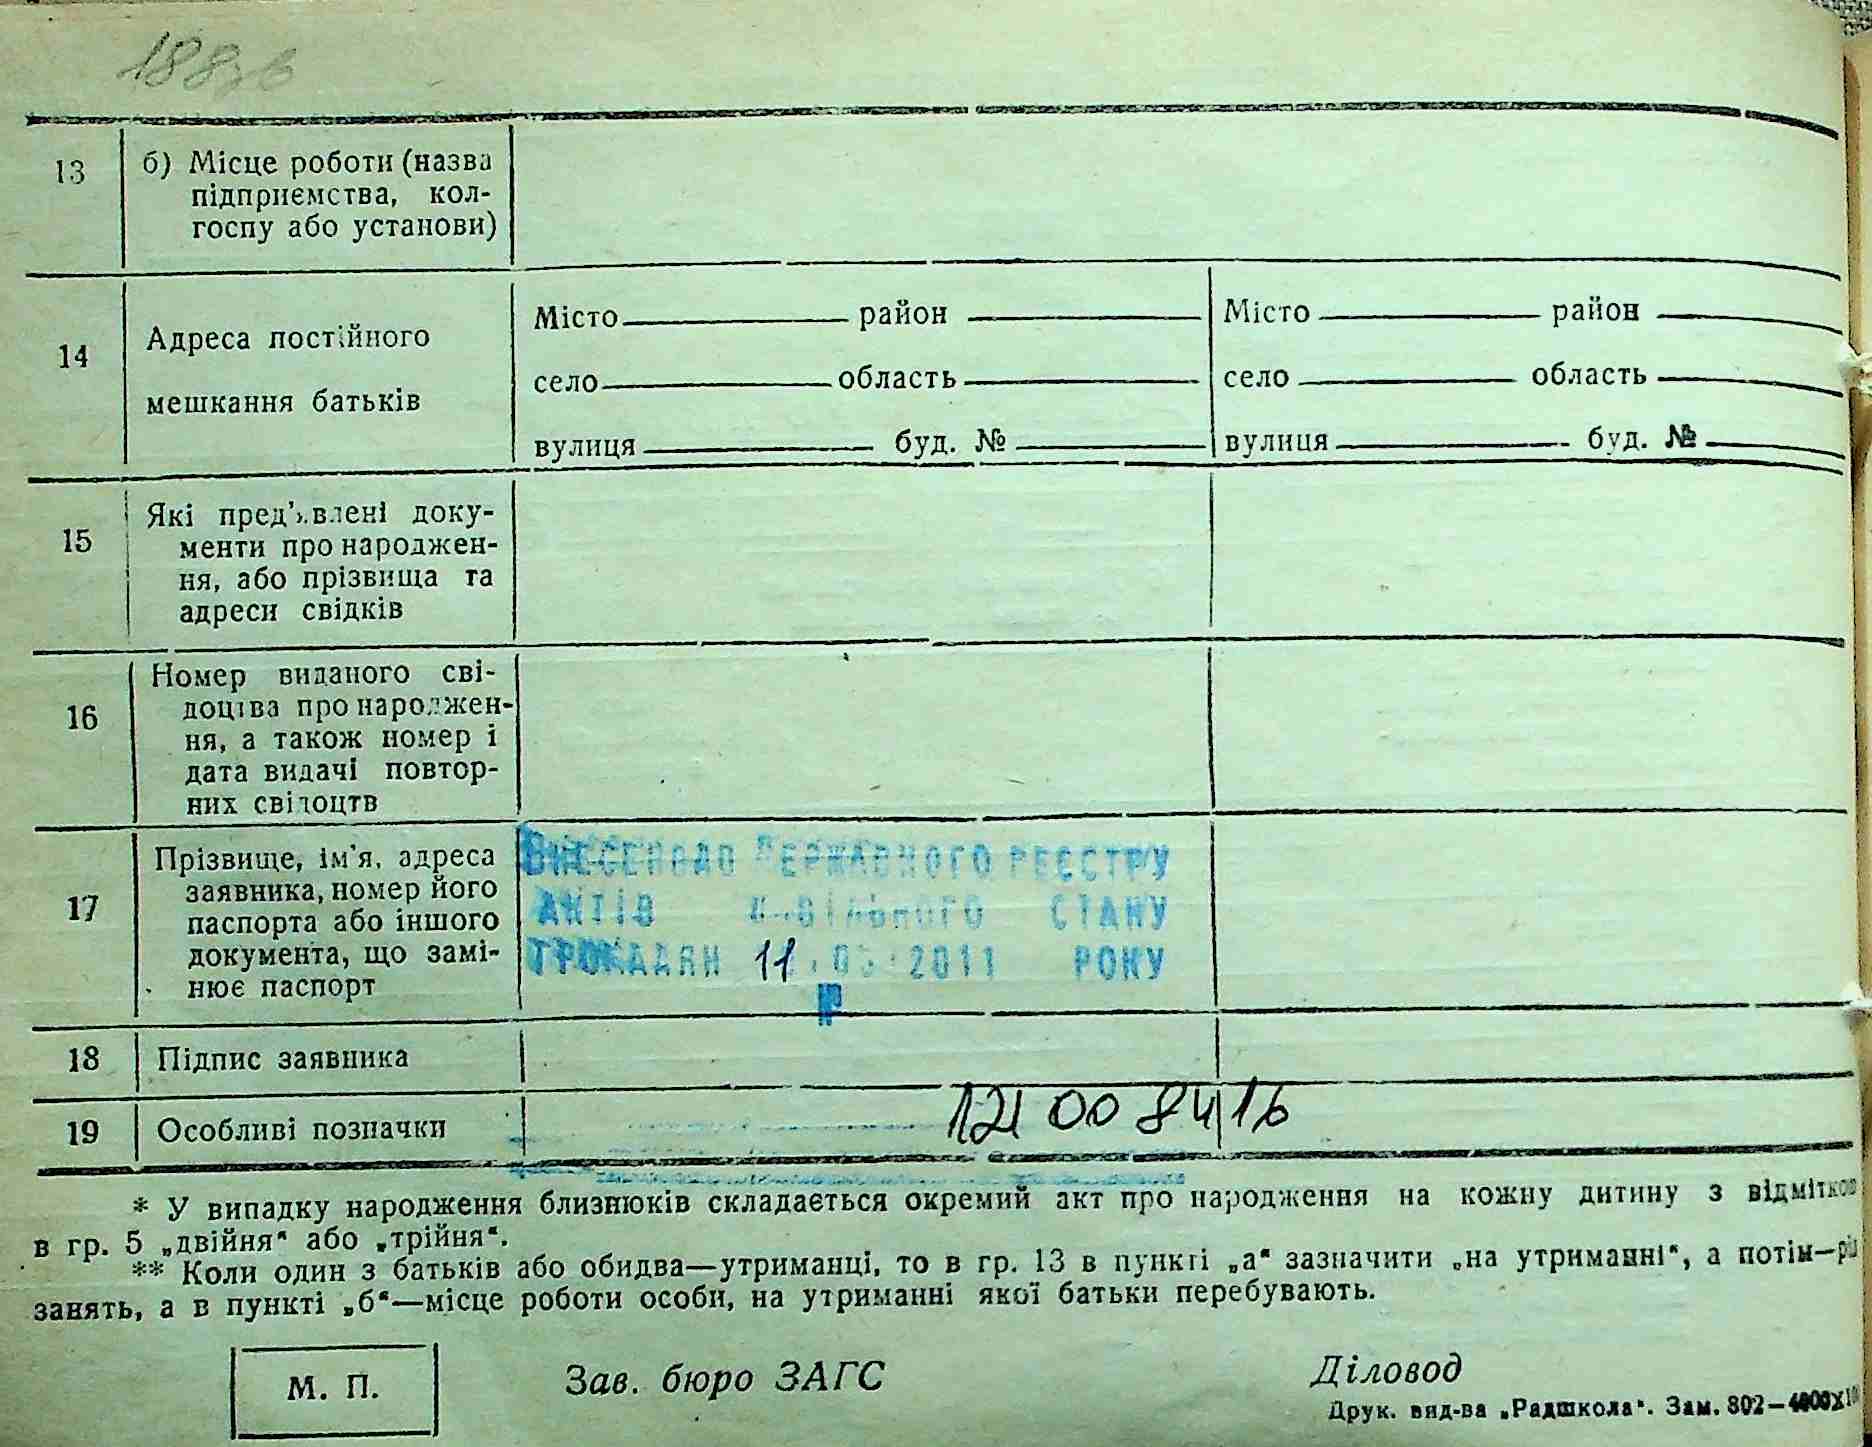 188зв
13
б) Місце роботи (назва
підприємства, кол-
госпу або установи)
14
Адреса постійного
мешкання батьків
Місто район
село область
вулиця буд. №
Місто район
село область
вулиця буд. №
15
Які пред’явлені доку-
менти про народжен-
ня, або прізвища та
адреси свідків
16
Номер виданого сві-
доцтва про народжен-
ня, а також номер і
дата видачі повтор-
них свідоцтв
17
Прізвище, ім’я, адреса
заявника, номер його
паспорта або іншого
документа, що замі-
нює паспорт
ВНЕСЕНО ДО ДЕРЖАВНОГО РЕЄСТРУ
АКТІВ ЦИВІЛЬНОГО СТАНУ
ГРОМАДЯН 11.05.2011 РОКУ
№
18
Підпис заявника
19
Особливі позначки
121 00 84 16
* У випадку народження близнюків складається окремий акт про народження на кожну дитину з відміткою
в гр. 5 „двійня“ або „трійня“.
** Коли один з батьків або обидва—утриманці, то в гр. 13 в пункті „а“ зазначити „на утриманні“, а потім—рід
занять, а в пункті „б“—місце роботи особи, на утриманні якої батьки перебувають.
М. П.
Зав. бюро ЗАГС
Діловод
Друк. вид-ва „Радшкола“. Зам. 802—4000X10